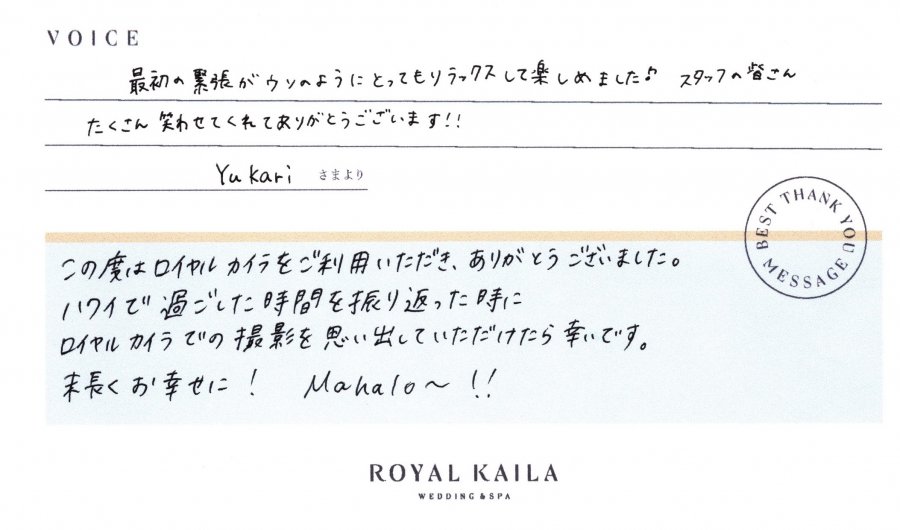 VOICE
最初の緊張がウソのようにとってもリラックスして楽しめました♪ スタッフの皆さん
たくさん笑わせてくれてありがとうございます!!
Yukari さまより
BEST THANK YOU MESSAGE
この度はロイヤルカイラをご利用いただき、ありがとうございました。
ハワイで過ごした時間を振り返った時に
ロイヤルカイラでの撮影を思い出していただけたら幸いです。
末長くお幸せに! Mahalo〜!!
ROYAL KAILA
WEDDING & SPA